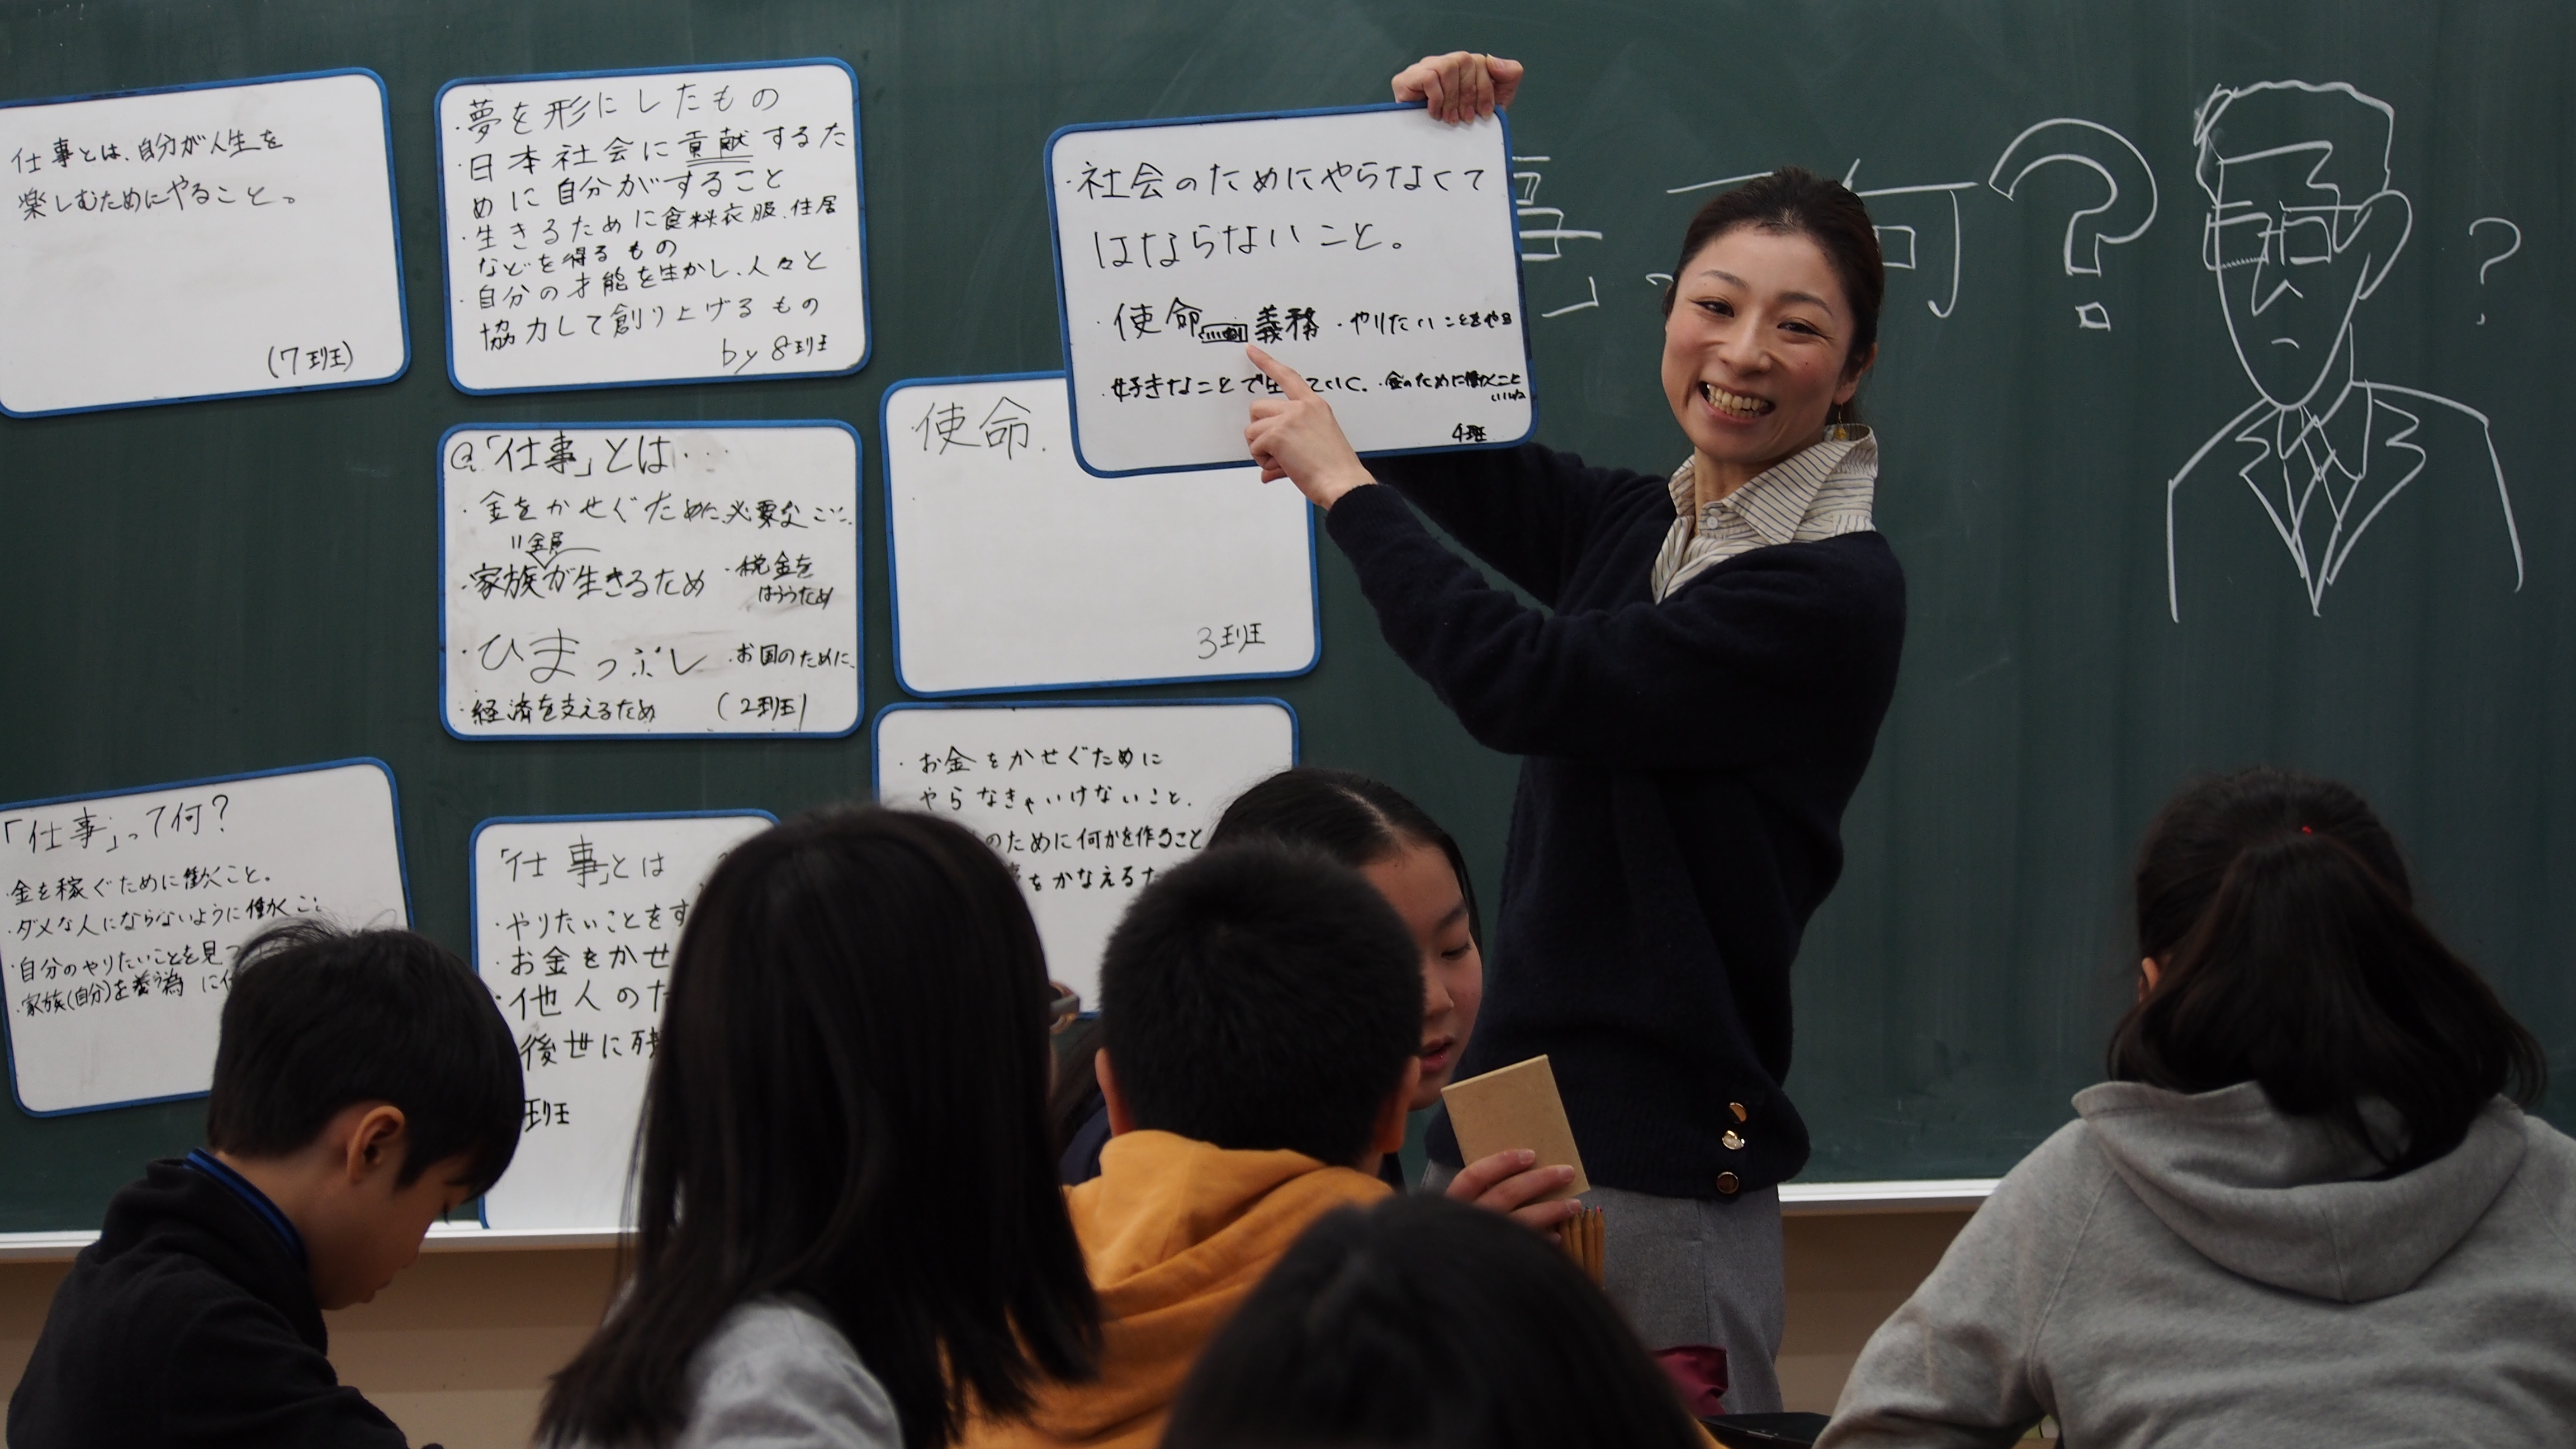 仕事とは、自分が人生を
楽しむためにやること。
(7班)
・夢を形にしたもの
・日本社会に貢献するた
めに自分がすること
・生きるために食料衣服、住居
などを得るもの
・自分の才能を生かし、人々と
協力して創り上げるもの
by 8班
・社会のためにやらなくて
はならないこと。
・使命 義務 ・やりたいことをやる
・好きなことで生 ていく。 ・金のために働くこと
4班
事 何?
?
@「仕事」とは・・・
・金をかせぐために必要な
・家族が生きるため ・税金を
はらうため
・ひまつぶし ・お国のために、
・経済を支えるため (2班)
使命.
3班
「仕事」って何?
・金を稼ぐために働くこと。
・ダメな人にならないように働くこ
・自分のやりたいことを見つ
・家族(自分)を養う為に
「仕事」とは
・やりたいことをす
・お金をかせ
・他人のた
後世に残
班
・お金をかせぐために
やらなきゃいけないこと.
のために何かを作ること
をかなえるた